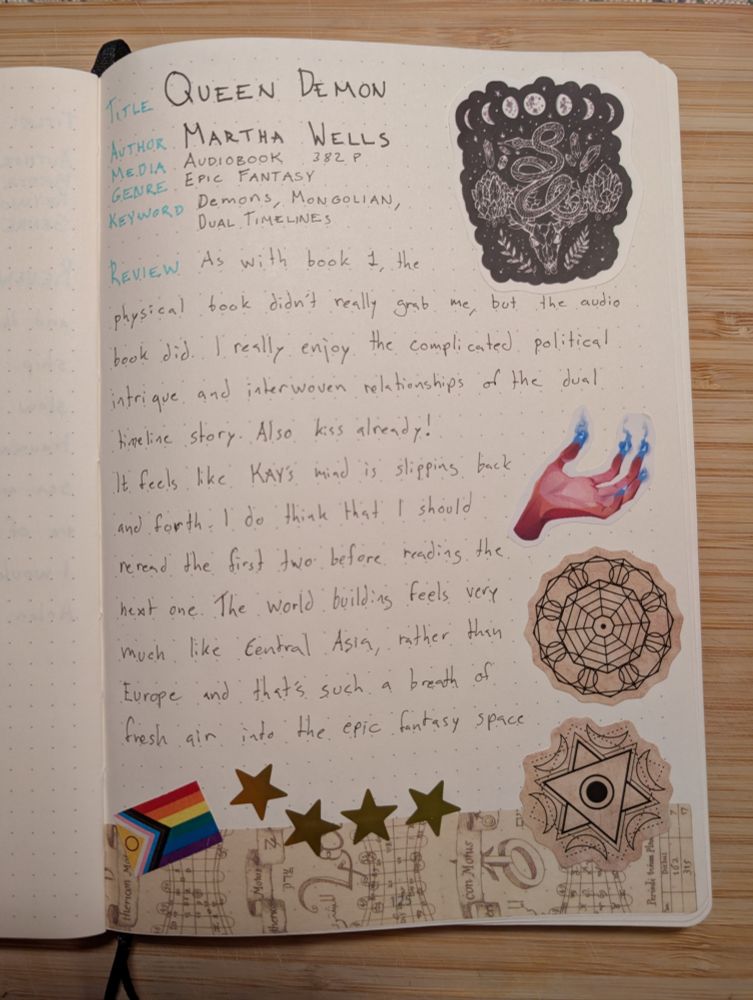 TITLE QUEEN DEMON
AUTHOR MARTHA WELLS
MEDIA AUDIOBOOK 382 P
GENRE EPIC FANTASY
KEYWORD DEMONS, MONGOLIAN,
DUAL TIMELINES
REVIEW As with book 1, the
physical book didn't really grab me, but the audio
book did. I really enjoy the complicated political
intrigue and interwoven relationships of the dual
timeline story. Also kiss already!
It feels like KAY's mind is slipping back
and forth. I do think that I should
reread the first two before reading the
next one. The world building feels very
much like Central Asia, rather than
Europe and that's such a breath of
fresh air into the epic fantasy space